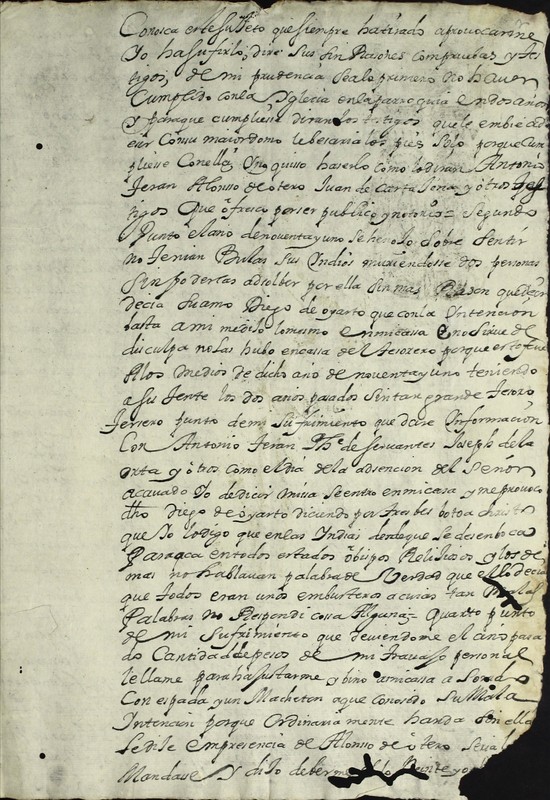 Conosca este sujeto que siempre ha tirado a provocarme
Yo ha sufrirlo; dire sus sin Rasones com pruebas y tes
tigos, de mi prudencia sea lo primero no haver
Cumplido con la Yglecia en la parroquia en dos años
y para que cumpliese diran los testigos que le embie a de
cir con su maiordomo le besaria los pies solo porque cum
pliese con ella, y no quiso haserlo como lo diran Antonio
Teran Alonso de otero Juan de Cartajena y otros tes
tigos que ofresco por ser publico y notorio = Segundo
Punto el año de noventa y uno se hecho lo sobre sentir
no tenian Bulas sus Yndios muriendosse dos personas
sin poderlas absolber por ella sin mas Rason que
decia su amo Diego de oyarto que con la Yntencion
basta a mi me diso lo mesmo en mi cassa no sirve de
disculpa no las hubo en cassa del tesorero porque este fue
A los medios de dicho año de noventa y uno teniendo
a su jente los dos años pasados sin tan grande tesoro
Tersero punto de mi sufrimiento que dare Ynformacion
Con Antonio Teran Thе de servantes Joseph de la
orta y otros como el dia de la absencion del señor
acavado Yo de dicir missa se entro en mi casa y me provoco
dho Diego de oyarto diciendo por tres bes boto a christo
que Yo lo digo que en las Yndias desde que se desenboca
Para aca en todos estados obispos Religiosos y los de
mas no hablauan palabra de Verdad que el lo decia
que todos eran unos embusteros a cuias tan malas
Palabras no Respondi cossa Alguna = Quarto punto
de mi sufrimiento que deviendome el año pasa
do Cantidad de pesos de mi travajo personal
le llame para ha justarme y bino a mi cassa a
Con espada y un Macheton a que conosido su Mala
Yntencion porque ordinaria mente handa sin ella
Se dile em presencia de Alonso de otero
Mandase Y dijo deberme